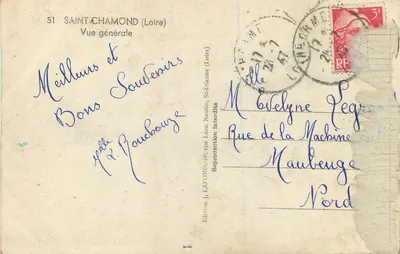 51 SAINT-CHAMOND (Loire)
Vue générale
Meilleurs et
Bons Souvenirs
Melle
Edition J. LAFOND, rue Léon Nautin, St-Etienne (Loire)
Reproduction interdite
LOIRE
17
24-7
RF
Melle
M Evelyne
Rue de la Machine
Maubeuge
Nord